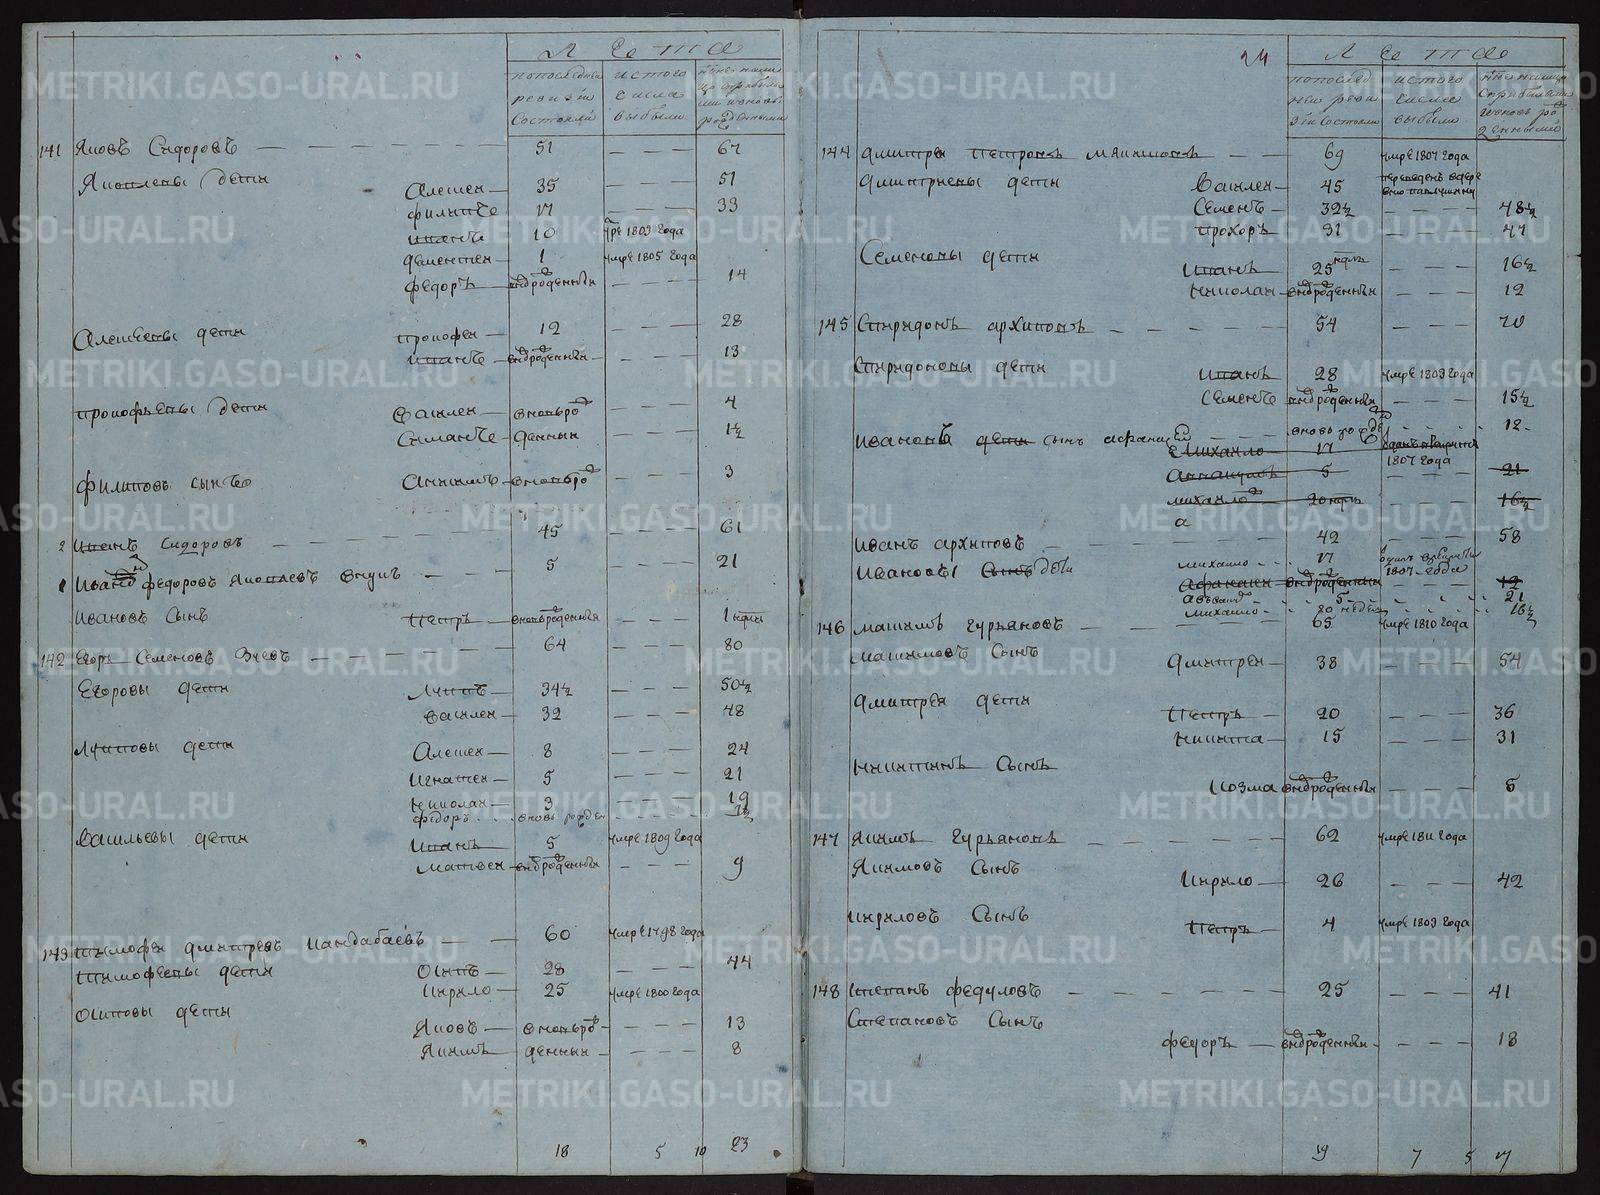 Лета
по последней ревизии состояли
из того числа выбыли
ныне на лицо с прибылыми и вновь рожденными
141 Яковъ Сидоровъ 51 67
Яковлевы дети Алексей 35 51
филиппъ 17 33
Иванъ 10 умре 1803 года
дементей 1 умре 1805 года
федоръ внврожденный 14
Алексеевы дети прокофей 12 28
Иванъ внврожденный 13
прокофьевы дети Василей вновьро 4
Симанъ жденныи 1½
филиповъ сынъ Акимъ вновьро 3
2 Иванъ Сидоровъ 45 61
Иванъ федоровъ Яковлевъ внукъ 5 21
Ивановъ Сынъ Петръ вновьрожденный 1
142 Егоръ Семеновъ Зуевъ 64 80
Егоровы дети Лупъ 34½ 50½
Василей 32 48
Луповы дети Алексей 8 24
Игнатей 5 21
Николай 3 19
федоръ вновь рожден 1½
Васильевы дети Иванъ 5 умре 1809 года
Матвей внврожденный 9
143 Тимофей дмитревъ Кандабаевъ 60 умре 1798 года
Тимофеевы дети Осипъ 28 44
Кирило 25 умре 1800 года
Осиповы дети Яковъ вновьро 13
Якимъ жденныи 8
18 5 10 23
24
Лета
по последней ревизии состояли
из того числа выбыли
ныне на лицо с прибылыми и вновь рожденными
144 дмитрей Петровъ Мякишевъ 69 умре 1807 года
дмитриевы дети Василей 45
Семенъ 32½ 48½
прохоръ 31 47
Семеновы дети Иванъ 25 нед 16½
Николай внврожденный 12
145 Спиридонъ архиповъ 54 70
Спиридоновы дети Иванъ 28 умре 1803 года
Семенъ внврожденный 15½
Ивановъ дети сынъ афанасей вновь рожде 12
Михайло 17 1807 года
5 21
михайло 20 нед 16½
а
Иванъ архиповъ 42 58
Ивановы Сынъ дети михайло 17 1807 года
Афанасей внврожденный 12
5 21
михайло 20 недель 16½
146 Максимъ Гурьяновъ 65 умре 1810 года
Максимовъ Сынъ дмитрей 38 54
дмитрея дети Петръ 20 36
Никита 15 31
Никитинъ Сынъ Козма внврожденный 5
147 Якимъ Гурьяновъ 62 умре 1811 года
Якимовъ Сынъ Кирило 26 42
Кириловъ Сынъ Петръ 4 умре 1803 года
148 Степанъ федуловъ 25 41
Степановъ Сынъ федоръ внврожденный 18
19 7 5 17
METRIKI.GASO-URAL.RU